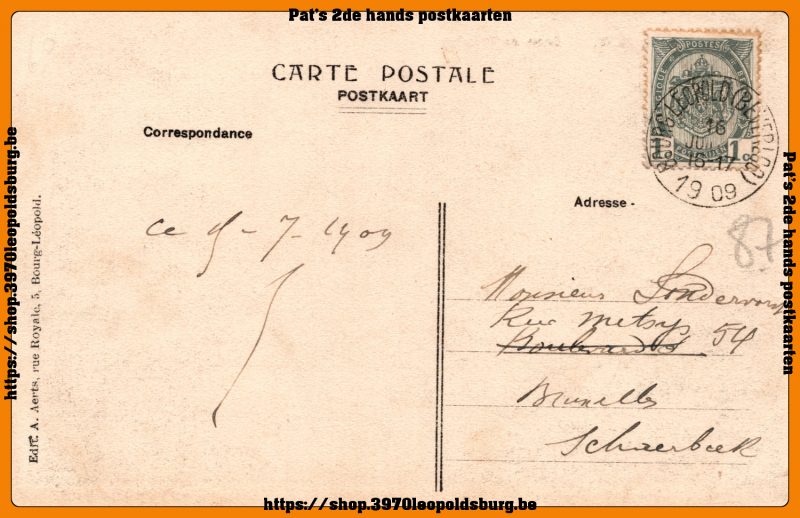 Pat's 2de hands postkaarten
CARTE POSTALE
POSTKAART
Correspondance
POSTES
1 1
BOURG-LÉOPOLD (BEVERLOO)
16
JUI
16-17
1909
Adresse -
87
ce 5 - 7 - 1909
Monsieur
Rue Metsys 54
Boulevard
Bruxelles
Schaerbeek
Edit. A. Aerts, rue Royale, 5, Bourg-Léopold.
https://shop.3970leopoldsburg.be
Pat's 2de hands postkaarten
https://shop.3970leopoldsburg.be